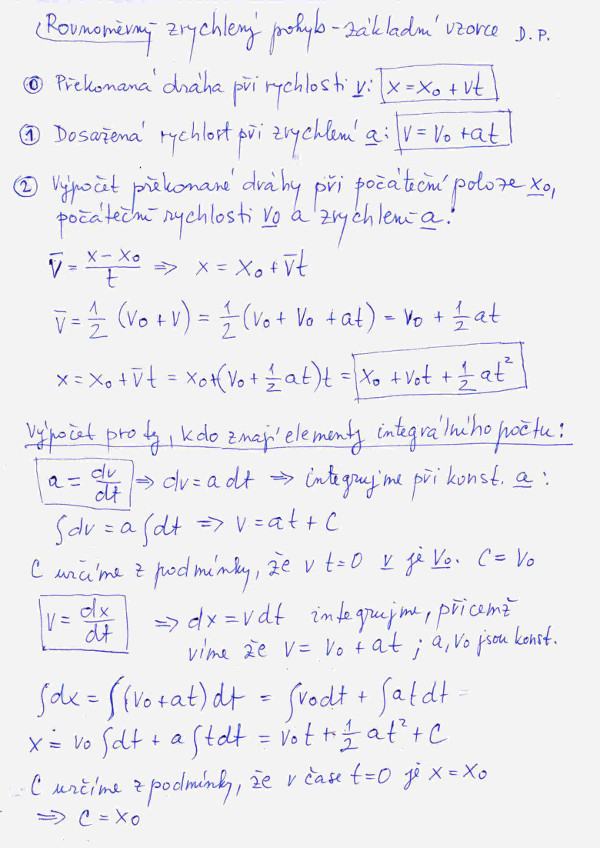 Rovnoměrný zrychlený pohyb - základní vzorce D.P.
⓪ Překonaná dráha při rychlosti v: x = x₀ + vt
① Dosažená rychlost při zrychlení a: v = v₀ + at
② Výpočet překonané dráhy při počáteční poloze x₀,
počáteční rychlosti v₀ a zrychlení a:
v̄ = (x - x₀)/t ⇒ x = x₀ + v̄t
v̄ = 1/2 (v₀ + v) = 1/2 (v₀ + v₀ + at) = v₀ + 1/2 at
x = x₀ + v̄t = x₀ + (v₀ + 1/2 at)t = x₀ + v₀t + 1/2 at²
Výpočet pro ty, kdo znají elementy integrálního počtu:
a = dv/dt ⇒ dv = a dt ⇒ integrujme při konst. a:
∫dv = a ∫dt ⇒ v = at + C
C určíme z podmínky, že v t=0 v je v₀. C = v₀
v = dx/dt ⇒ dx = v dt integrujme, přičemž
víme že v = v₀ + at ; a, v₀ jsou konst.
∫dx = ∫(v₀ + at) dt = ∫v₀dt + ∫at dt =
x = v₀ ∫dt + a ∫tdt = v₀t + 1/2 at² + C
C určíme z podmínky, že v čase t=0 je x = x₀
⇒ C = x₀